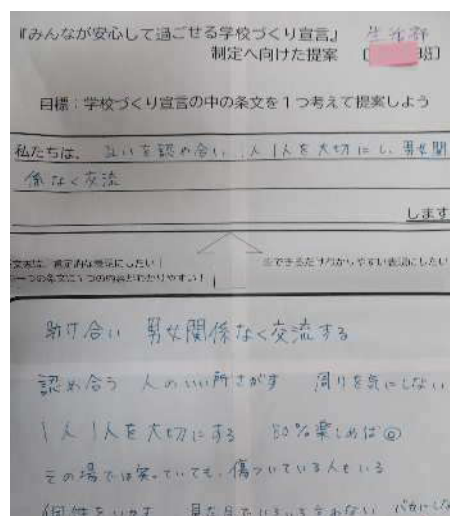 『みんなが安心して過ごせる学校づくり宣言』 生活部
制定へ向けた提案 〔 班〕
目標:学校づくり宣言の中の条文を1つ考えて提案しよう
私たちは、 互いを認め合い、1人1人を大切にし、男女関
係なく交流
します
※できるだけわかりやすい表現にしたい
助け合い 男女関係なく交流する
認め合う 人のいい所さがす 周りを気にしない
1人1人を大切にする 80%楽しめば
その場では笑っていても、傷ついている人もいる